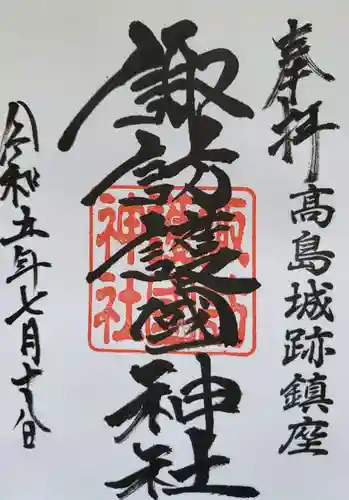 奉拝
高島城跡鎮座
諏訪護國神社
諏訪護國神社
令和五年七月十八日